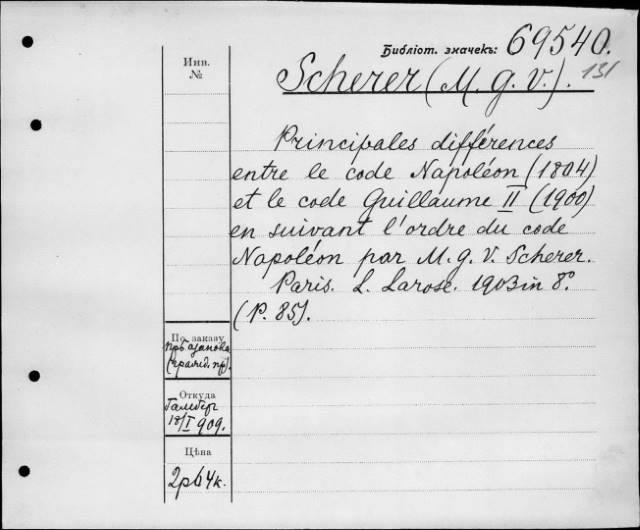 Библіот. значекъ: 69540.
131
Инв.
№
Scherer (M. g. v.).
Principales différences
entre le code Napoléon (1804)
et le code Guillaume II (1900)
en suivant l'ordre du code
Napoléon par M. g. v. Scherer.
Paris. L. Larose. 1903 in 8°.
(P. 85).
По заказу
Откуда
18/I 909.
Цѣна
2р 64к.